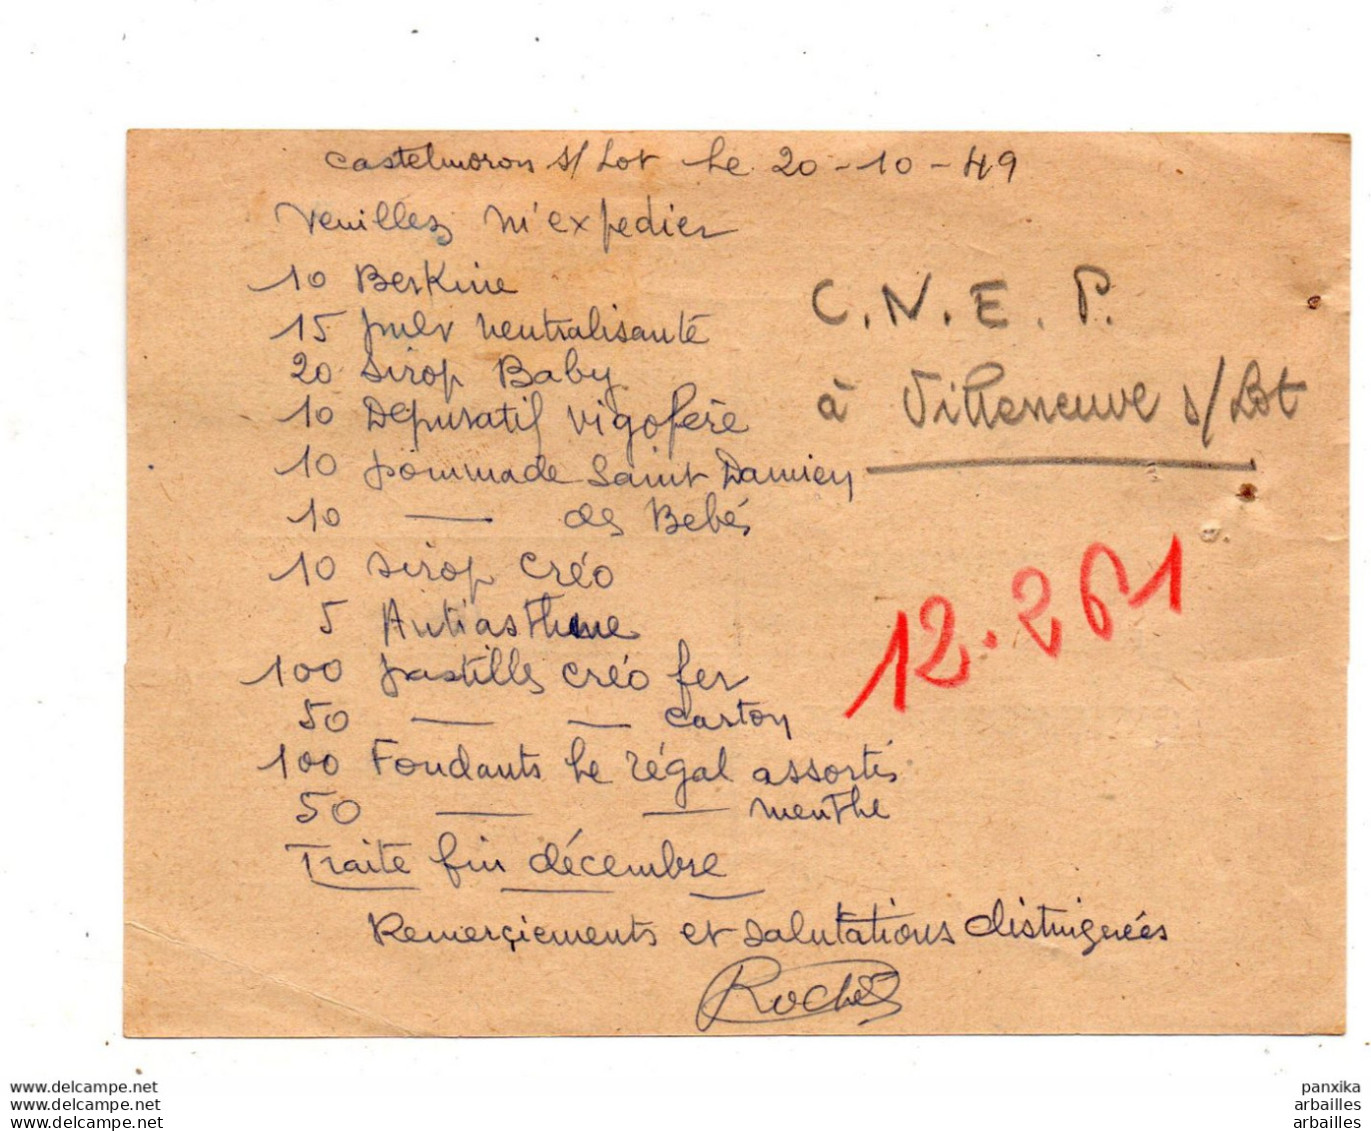 Castelmoron s/Lot Le 20-10-49
Veuillez m'expedier
10 Berkine
15 neutralisante
20 Sirop Baby
10 Depuratif vigofère
10 pommade Saint Damien
10 — des Bébés
10 Sirop Créo
5 Antiasthme
100 pastilles créo fer
50 — — carton
100 Fondants Le régal assortis
50 — — menthe
Traite fin décembre
Remerçiements et salutations distinguées
C.N.E.P.
à Villeneuve s/Lot
12.261
www.delcampe.net
www.delcampe.net
www.delcampe.net
panxika
arbailles
arbailles